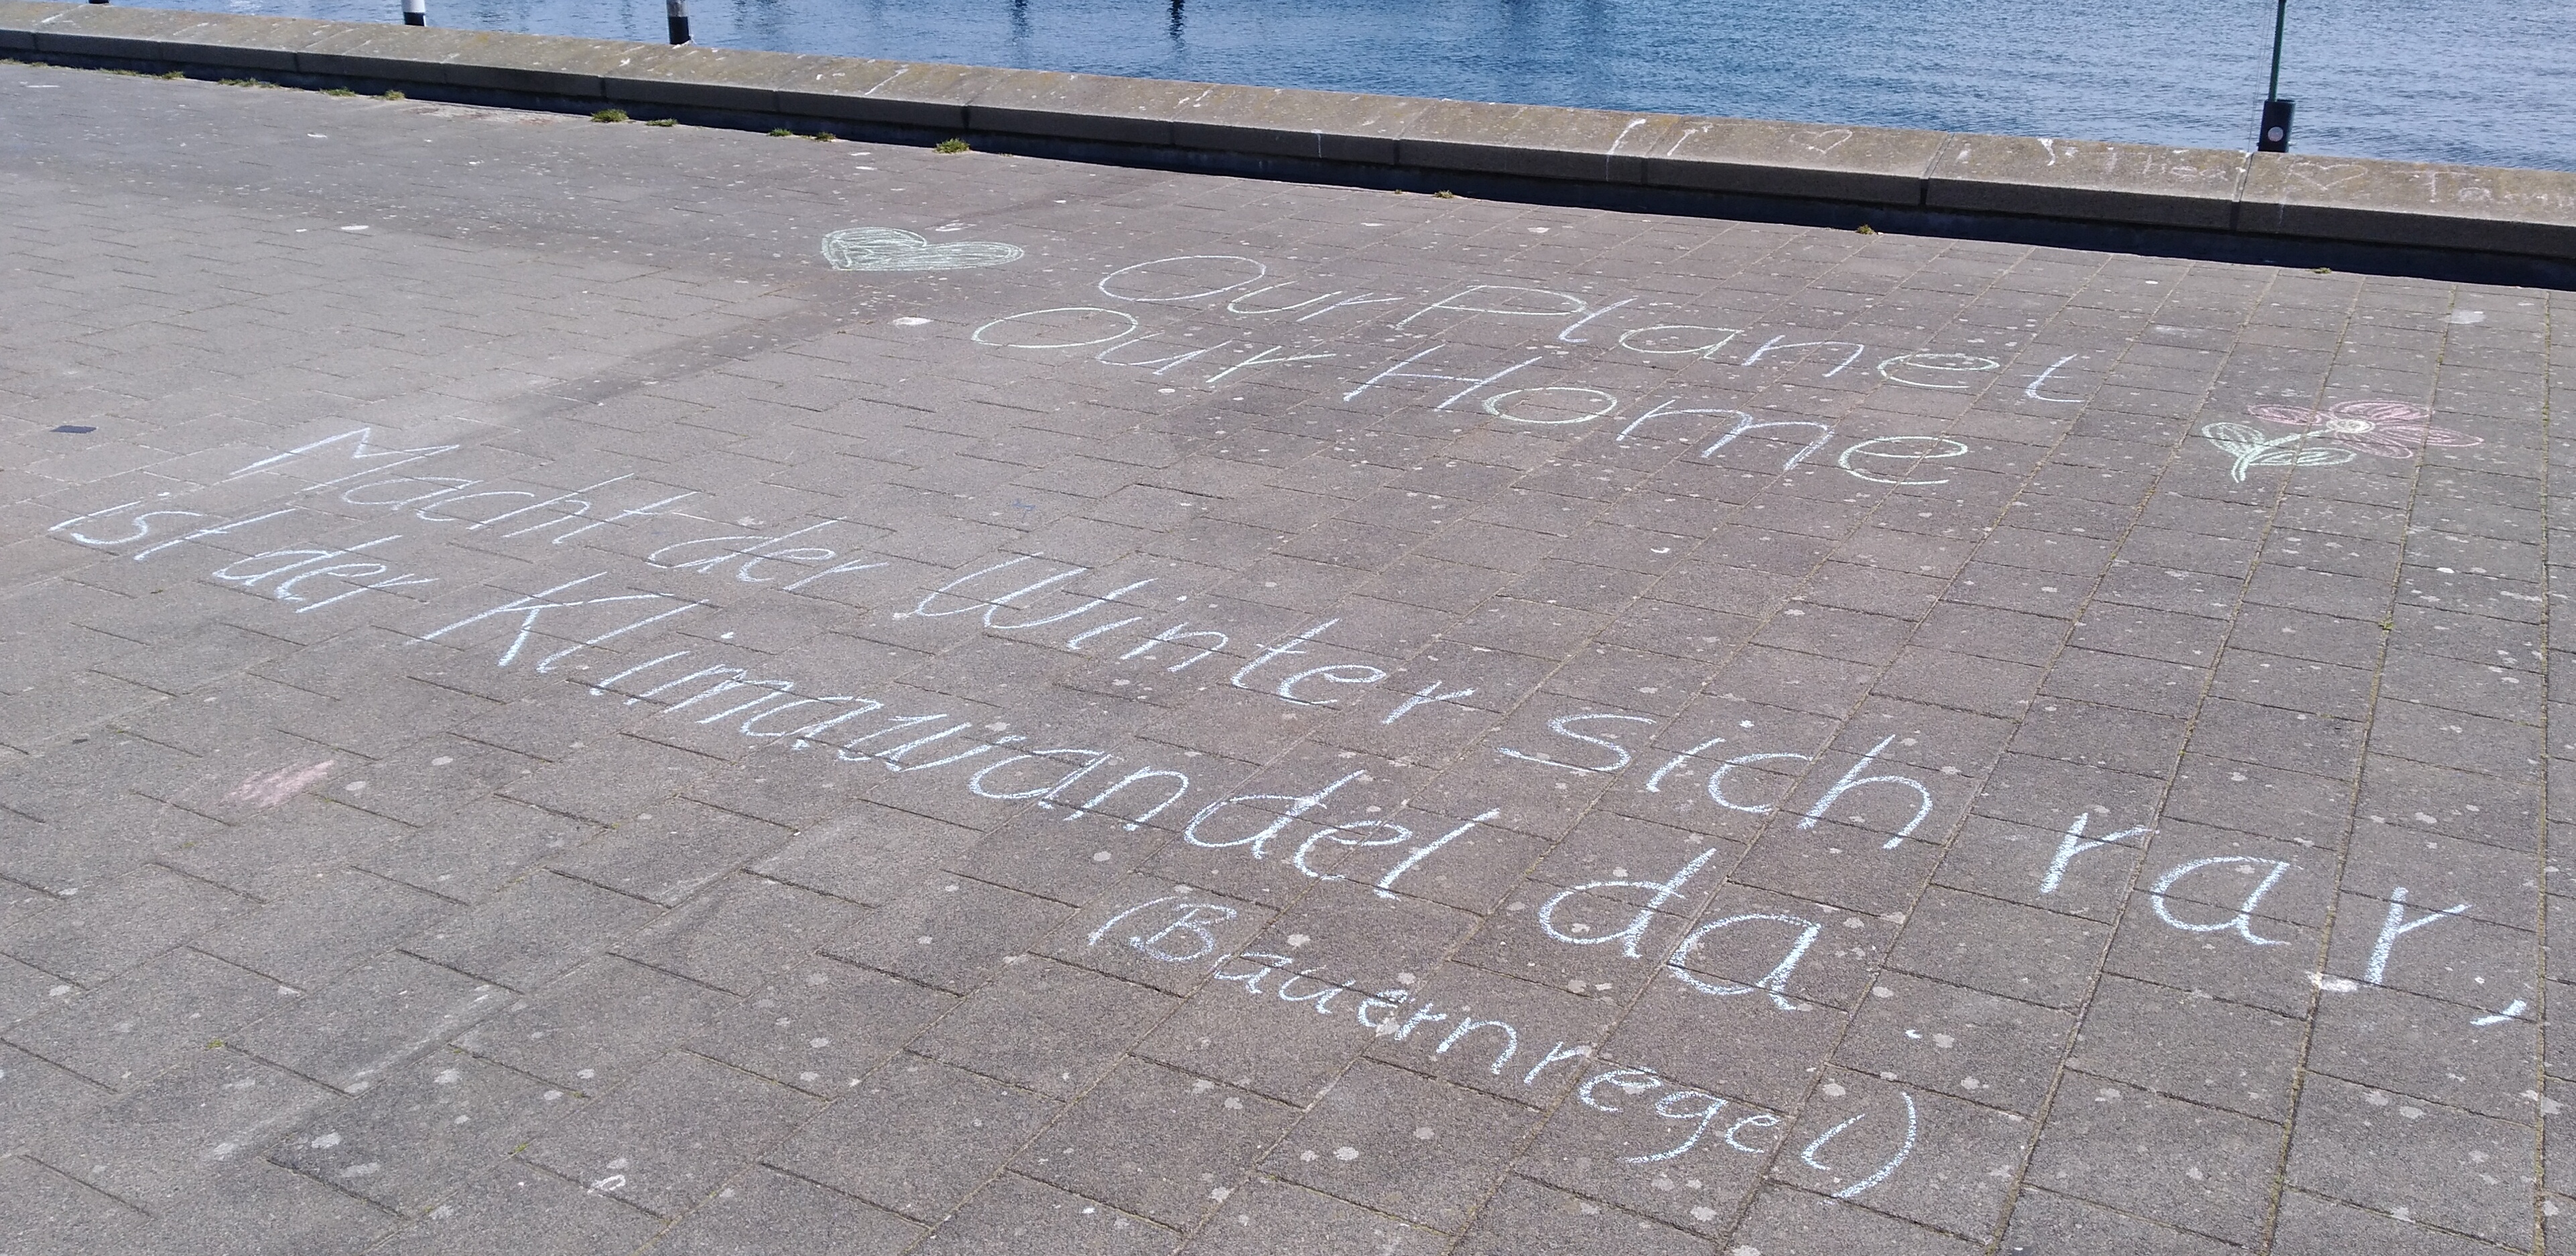 Our Planet
Our Home
Macht der Winter sich rar,
ist der Klimawandel da.
(Bauernregel)